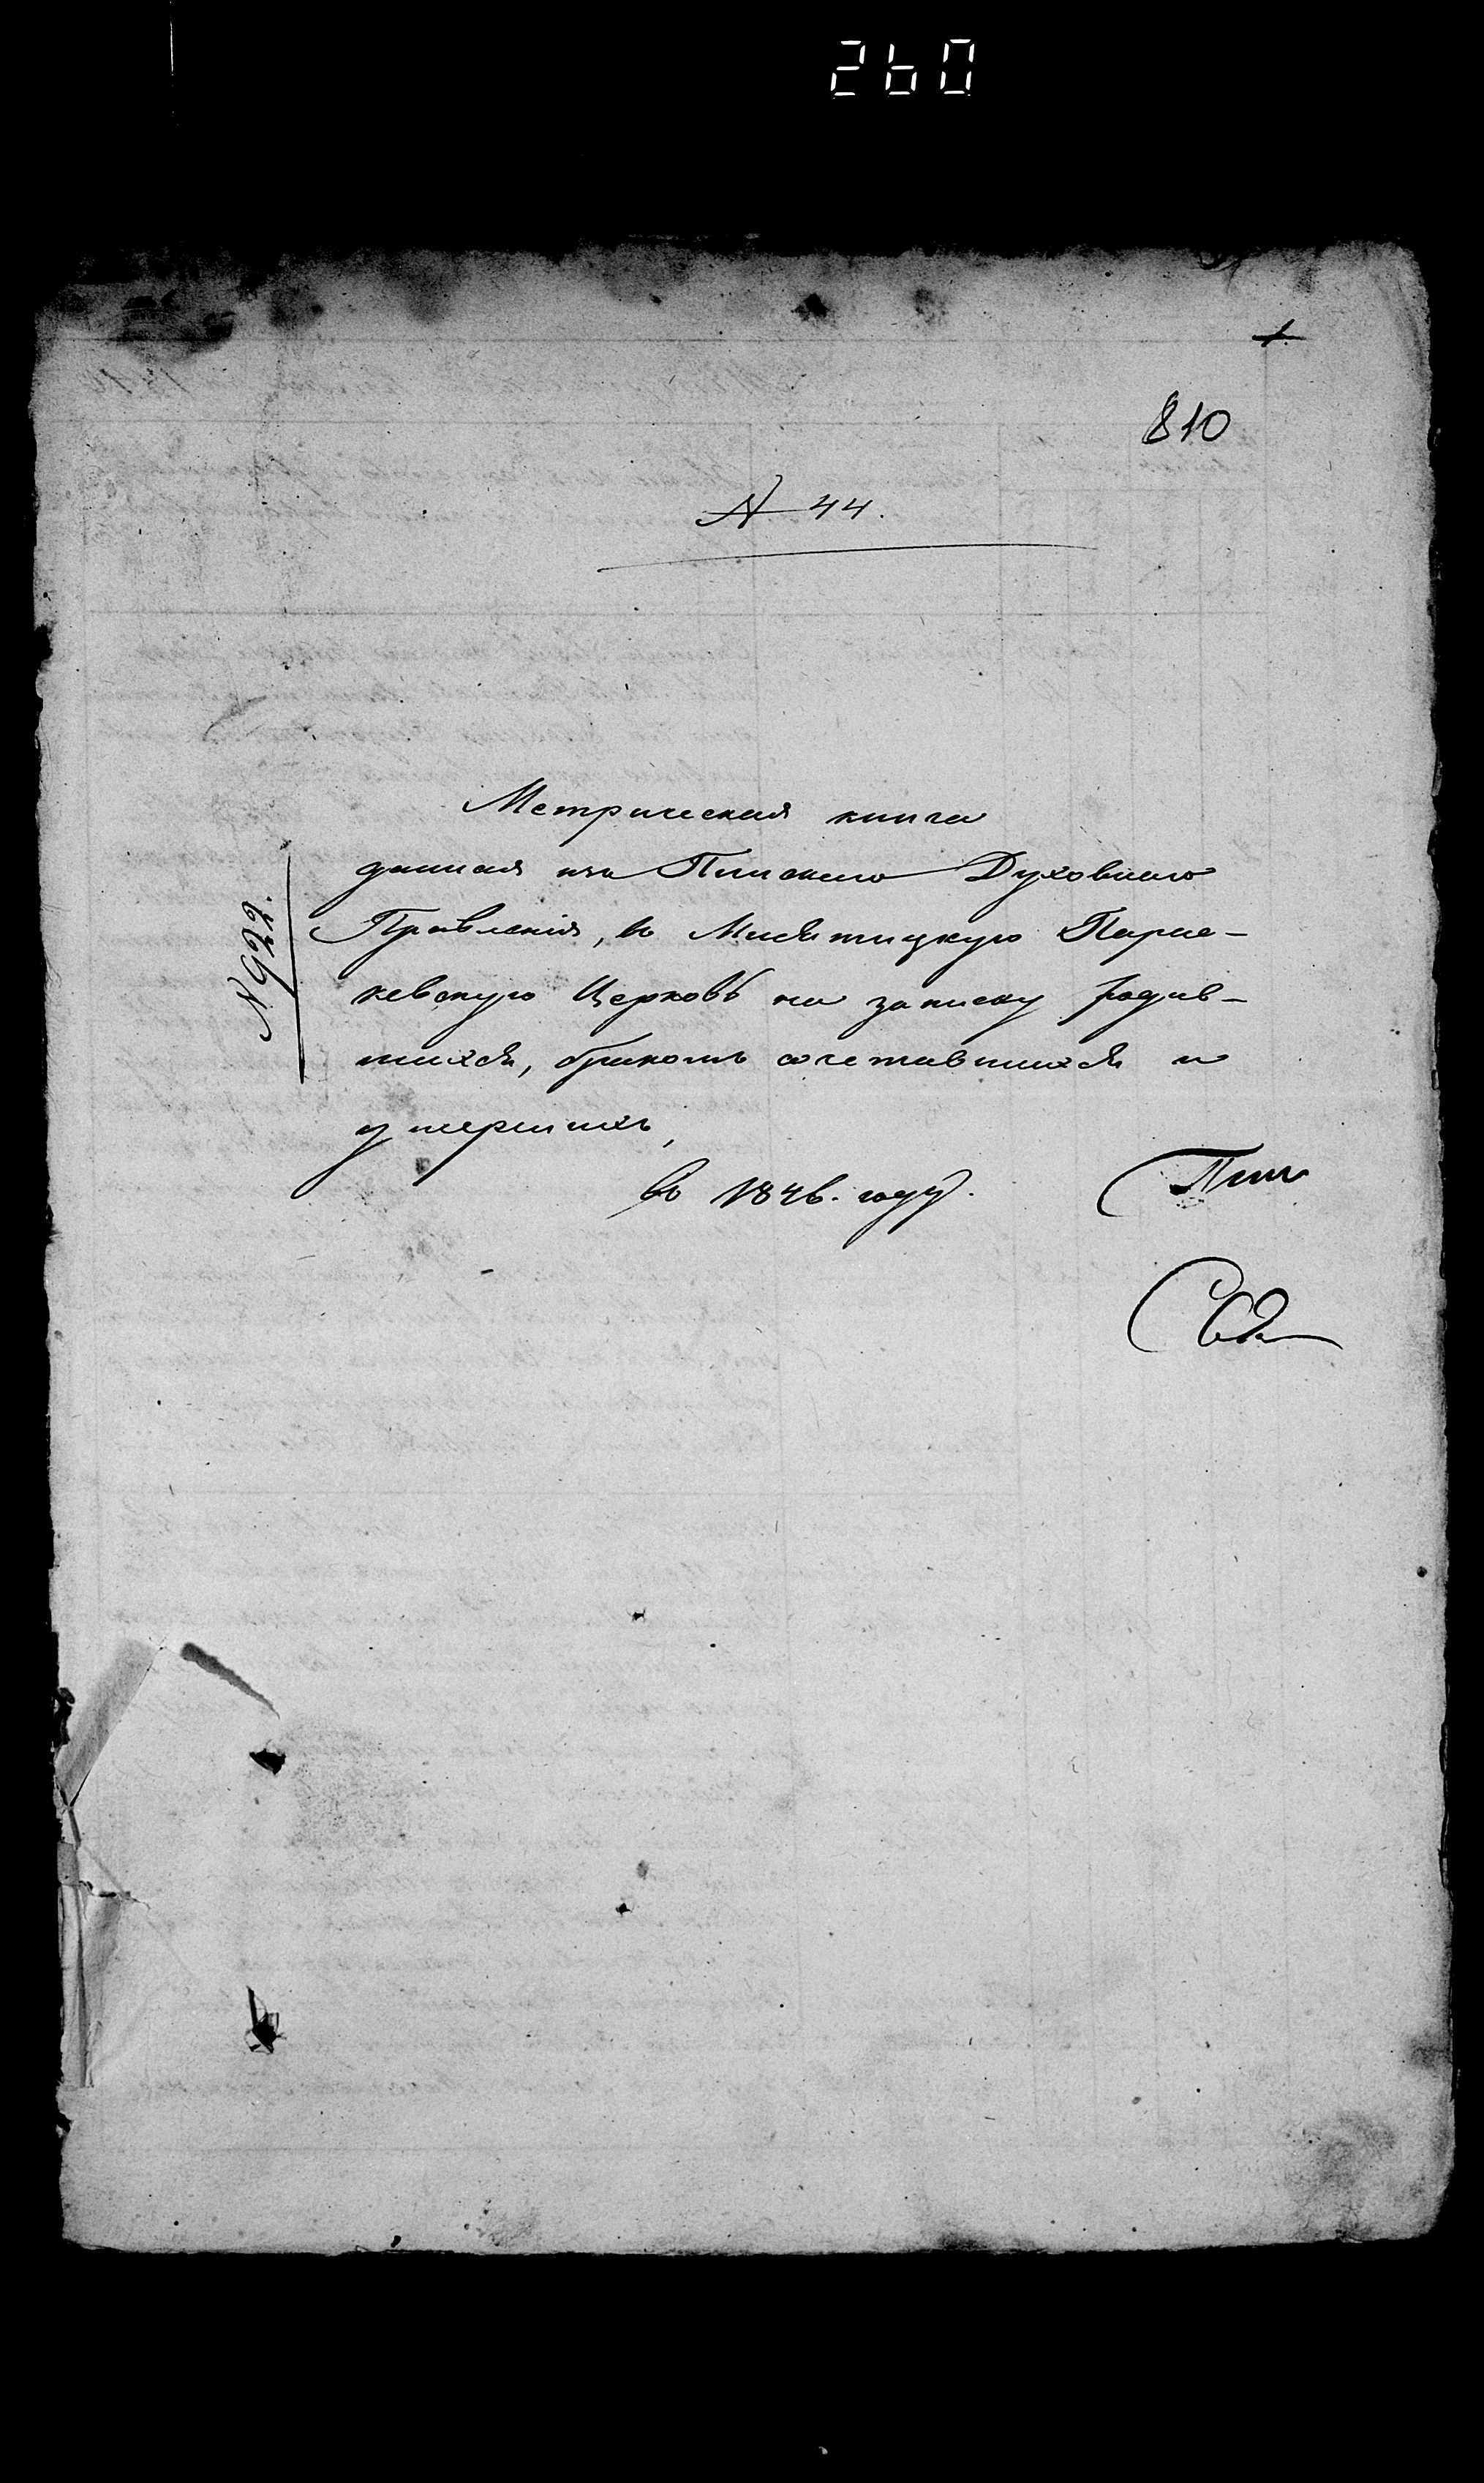 260
1.
810
№ 44.
Метрическая книга
данная изъ Пинскаго Духовнаго
№ 922.
Правленія, въ Мисятицкую Парас-
кевскую Церковь на записку родив-
шихся, бракомъ сочетавшихся и
умершихъ,
въ 1846. году.
Пин